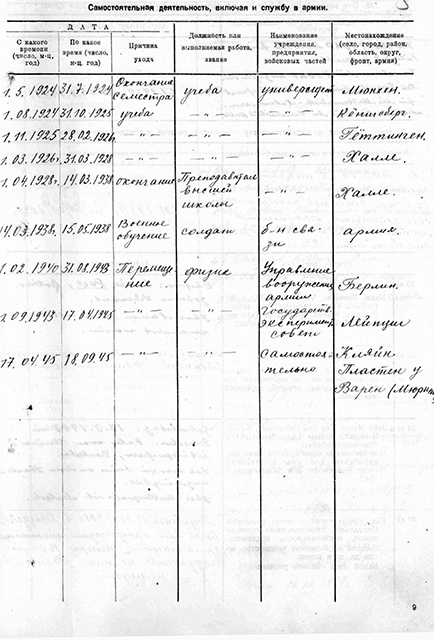 Самостоятельная деятельность, включая и службу в армии.
ДАТА
С какого времени (число, м-ц, год)
По какое время (число, м-ц, год)
Причина ухода
Должность или выполняемая работа, звание
Наименование учреждения, предприятия, войсковых частей
Местонахождение (село, город, район, область, округ, фронт, армия)
1.5.1924 31.7.1924 Окончание семестра учеба университет Мюнхен.
1.08.1924 31.10.1925 учеба –"– –"– Кёнигсберг.
1.11.1925 28.02.1926г –"– –"– –"– Гёттинген.
1.03.1926г 31.03.1928 –"– –"– –"– Халле.
1.04.1928г. 14.03.1938 окончание Преподаватель высшей школы –"– Халле.
14.03.1938г 15.05.1938 Военное обучение солдат б-н связи армия.
1.02.1940 31.08.1943 Перемещение физик Управление вооружений армии Берлин.
1.09.1943 17.04.1945 –"– –"– Государств. эксперимент. совет Лейпциг
17.04.45 18.09.45 –"– –"– самостоятельно Кляйн Пластен у Варен
9